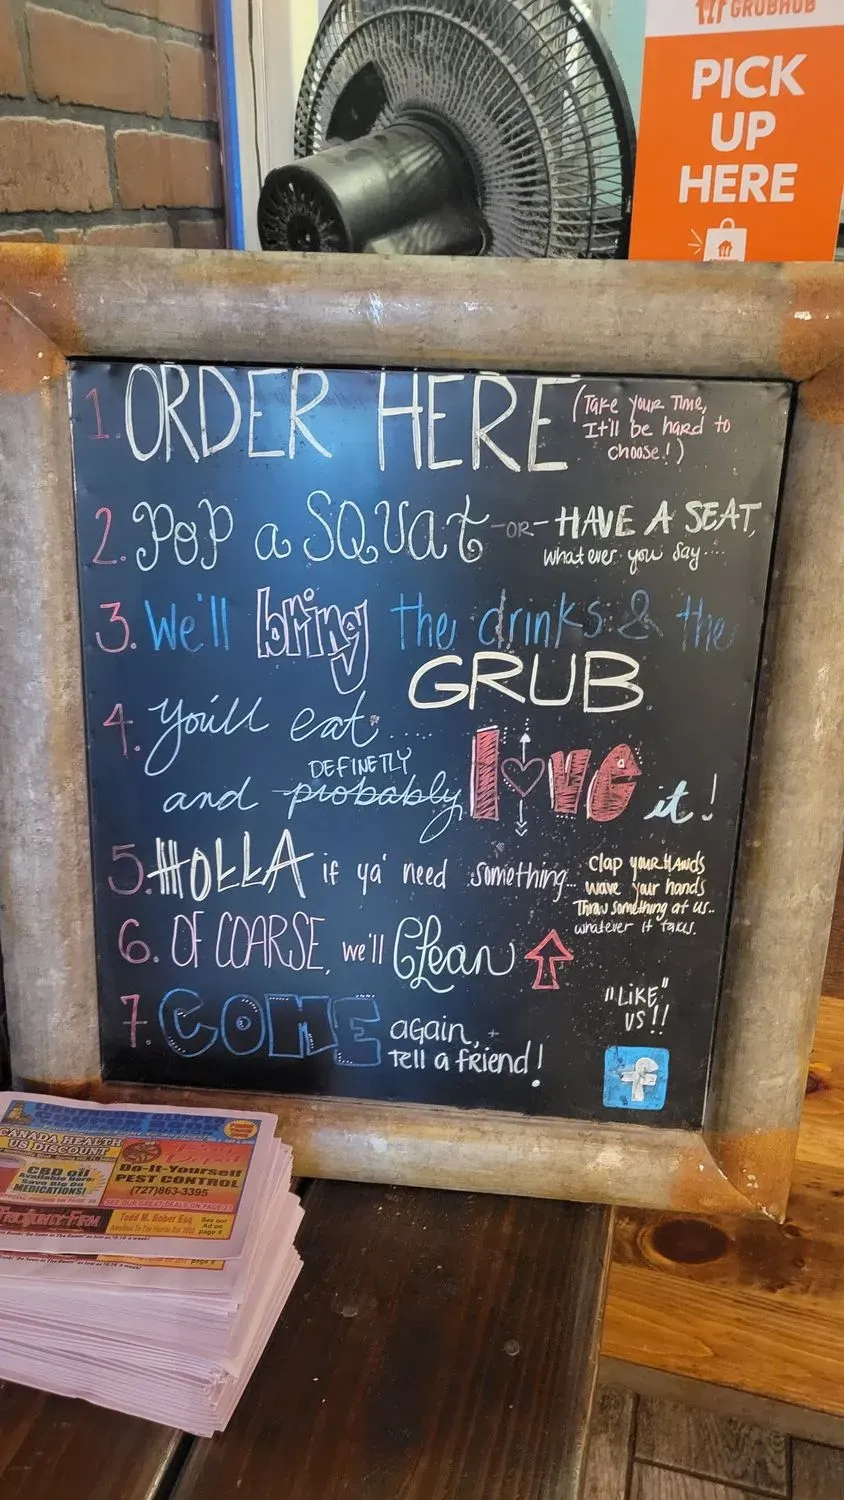 GRUBHUB
PICK
UP
HERE
1. ORDER HERE (Take your Time,
It'll be hard to
choose!)
2. POP a SQUat -OR- HAVE A SEAT,
whatever you say....
3. We'll bring the drinks & the
GRUB
4. You'll eat.....
DEFINETLY
and probably love it!
5. HOLLA if ya' need something...
clap your HANDS
wave your hands
Throw something at us..
whatever it takes.
6. OF COARSE, we'll CLean
7. COME again, +
Tell a friend!
"LIKE"
US!!
f
CANADA HEALTH
US DISCOUNT
CBD oil
Available Here.
Save Big On
MEDICATIONS!
Do-It-Yourself
PEST CONTROL
(727)863-3395
SEE OUR GREAT DEALS ON PAGE 23
Todd M. Bober Esq
See our
Ad on
page 5